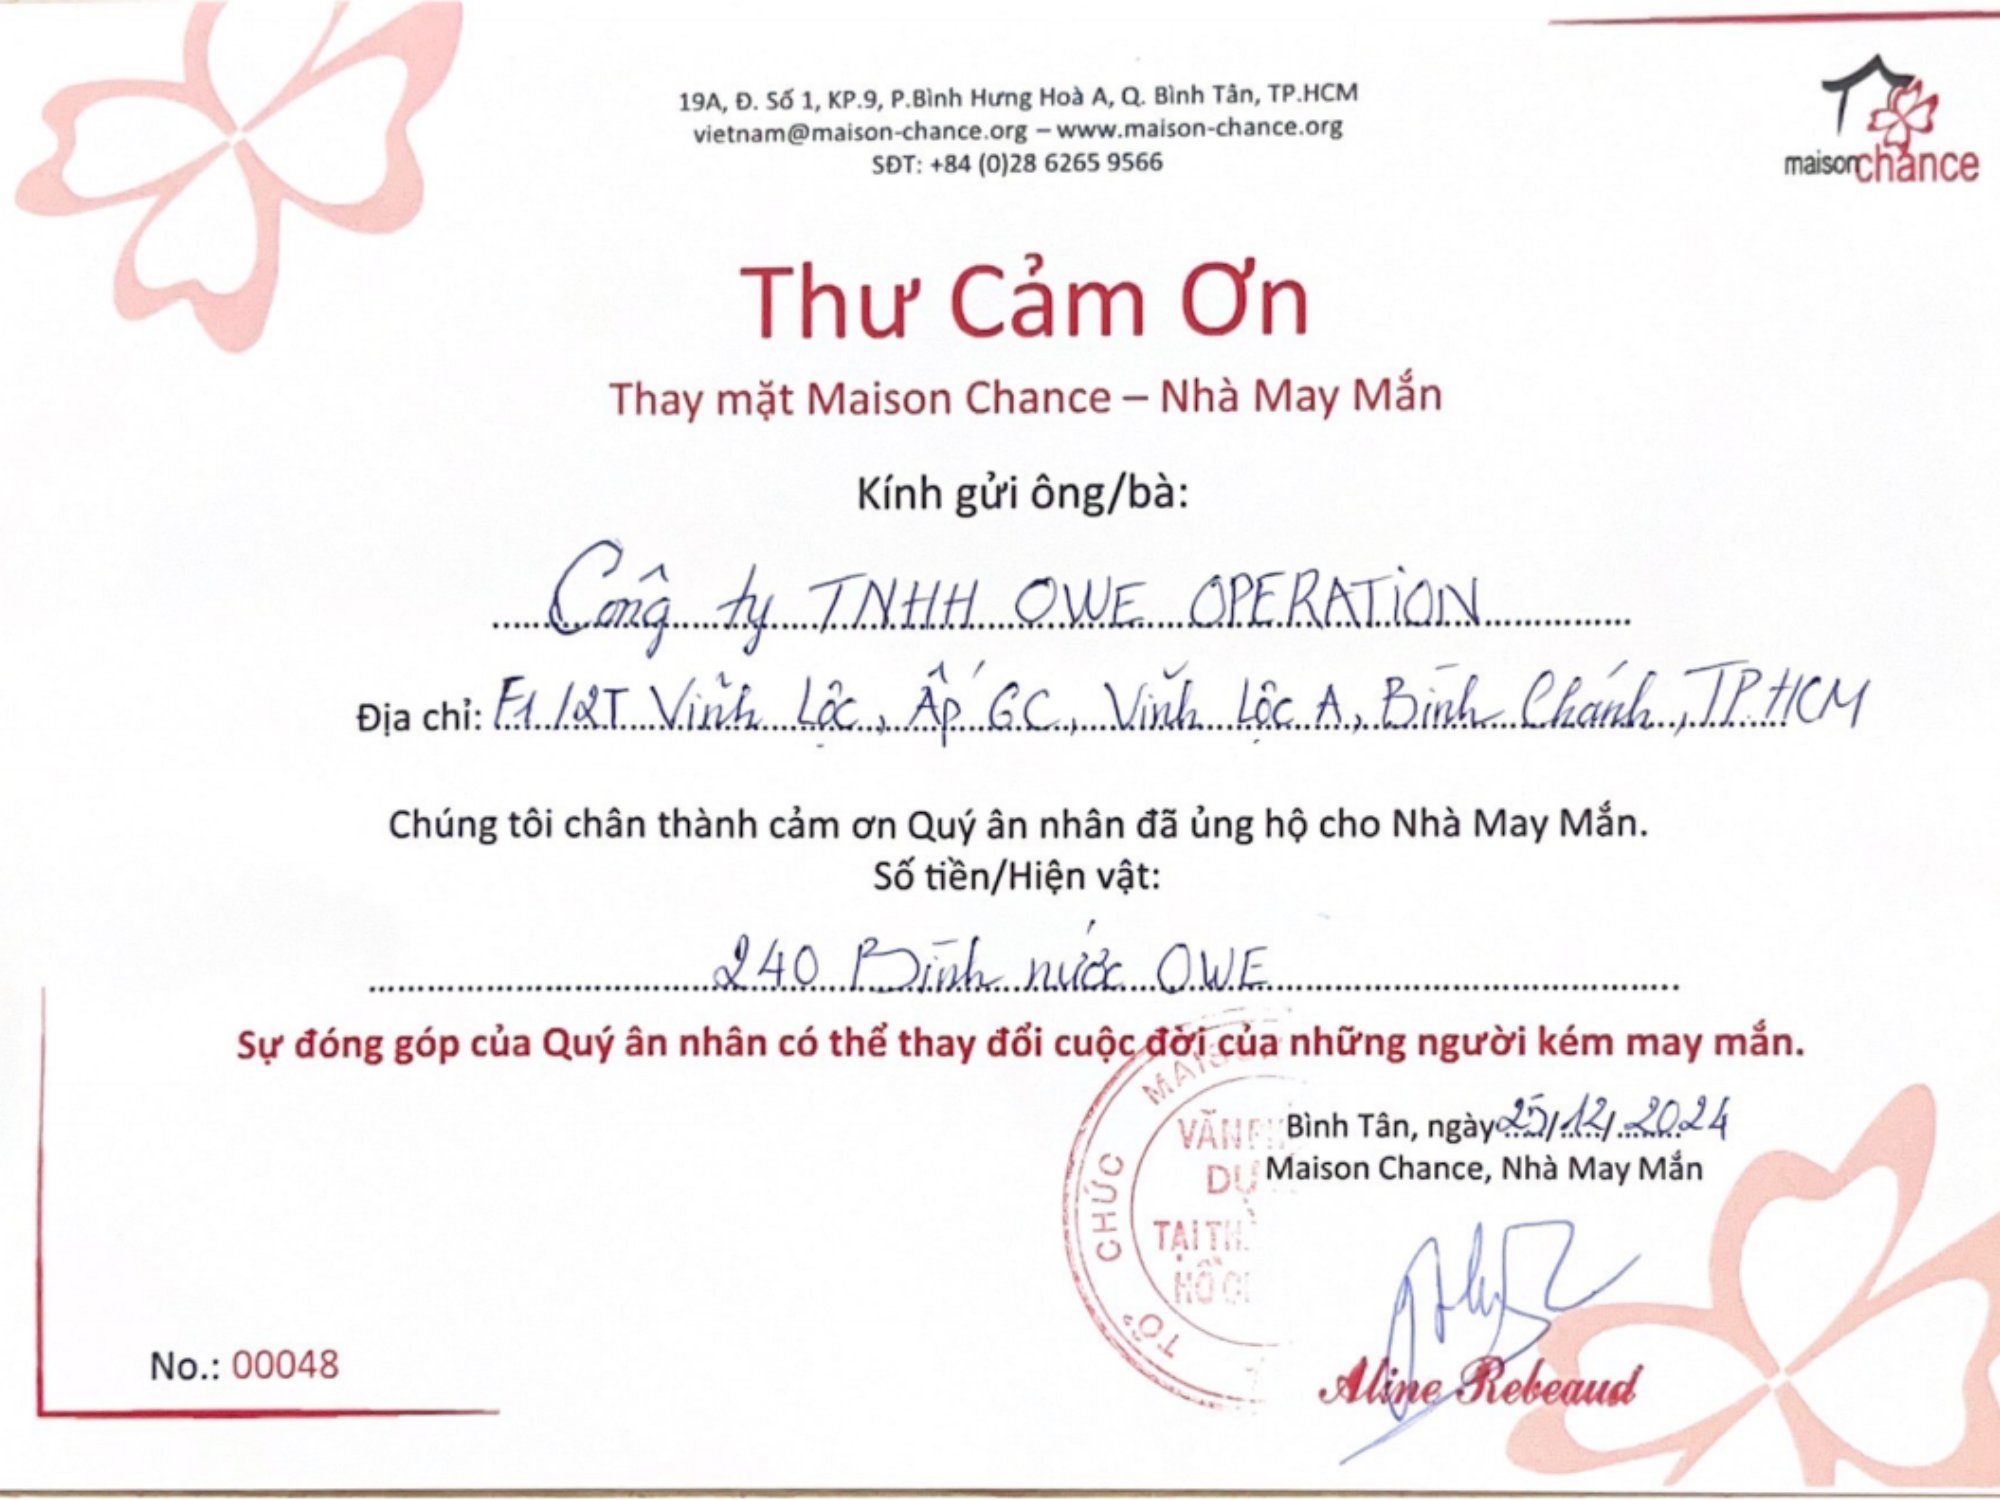 19A, Đ. Số 1, KP.9, P.Bình Hưng Hoà A, Q. Bình Tân, TP.HCM
vietnam@maison-chance.org – www.maison-chance.org
SĐT: +84 (0)28 6265 9566
maisonchance
Thư Cảm Ơn
Thay mặt Maison Chance – Nhà May Mắn
Kính gửi ông/bà:
Công ty TNHH OWE OPERATION
Địa chỉ: F1/2T Vĩnh Lộc, Ấp 6C, Vĩnh Lộc A, Bình Chánh, TP.HCM
Chúng tôi chân thành cảm ơn Quý ân nhân đã ủng hộ cho Nhà May Mắn.
Số tiền/Hiện vật:
240 Bình nước OWE
Sự đóng góp của Quý ân nhân có thể thay đổi cuộc đời của những người kém may mắn.
Bình Tân, ngày 25/12/2024
Maison Chance, Nhà May Mắn
TỔ CHỨC
Aline Rebeaud
No.: 00048